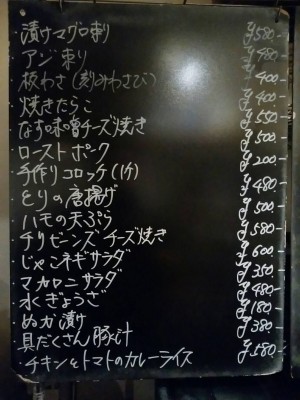 ・漬けマグロ刺 ¥580-
・アジ刺 ¥480-
・板わさ(刻みわさび) ¥400-
・焼きたらこ ¥400-
・なすの味噌チーズ焼き ¥550-
・ローストポーク ¥500-
・手作りコロッケ(1ケ) ¥200-
・とりの唐揚げ ¥480-
・ハモの天ぷら ¥500-
・チリビーンズチーズ焼き ¥580-
・じゃこネギサラダ ¥600-
・マカロニサラダ ¥350-
・水ぎょうざ ¥480-
・ぬか漬け ¥180-
・具だくさん豚汁 ¥380-
・チキンとトマトのカレーライス ¥580-